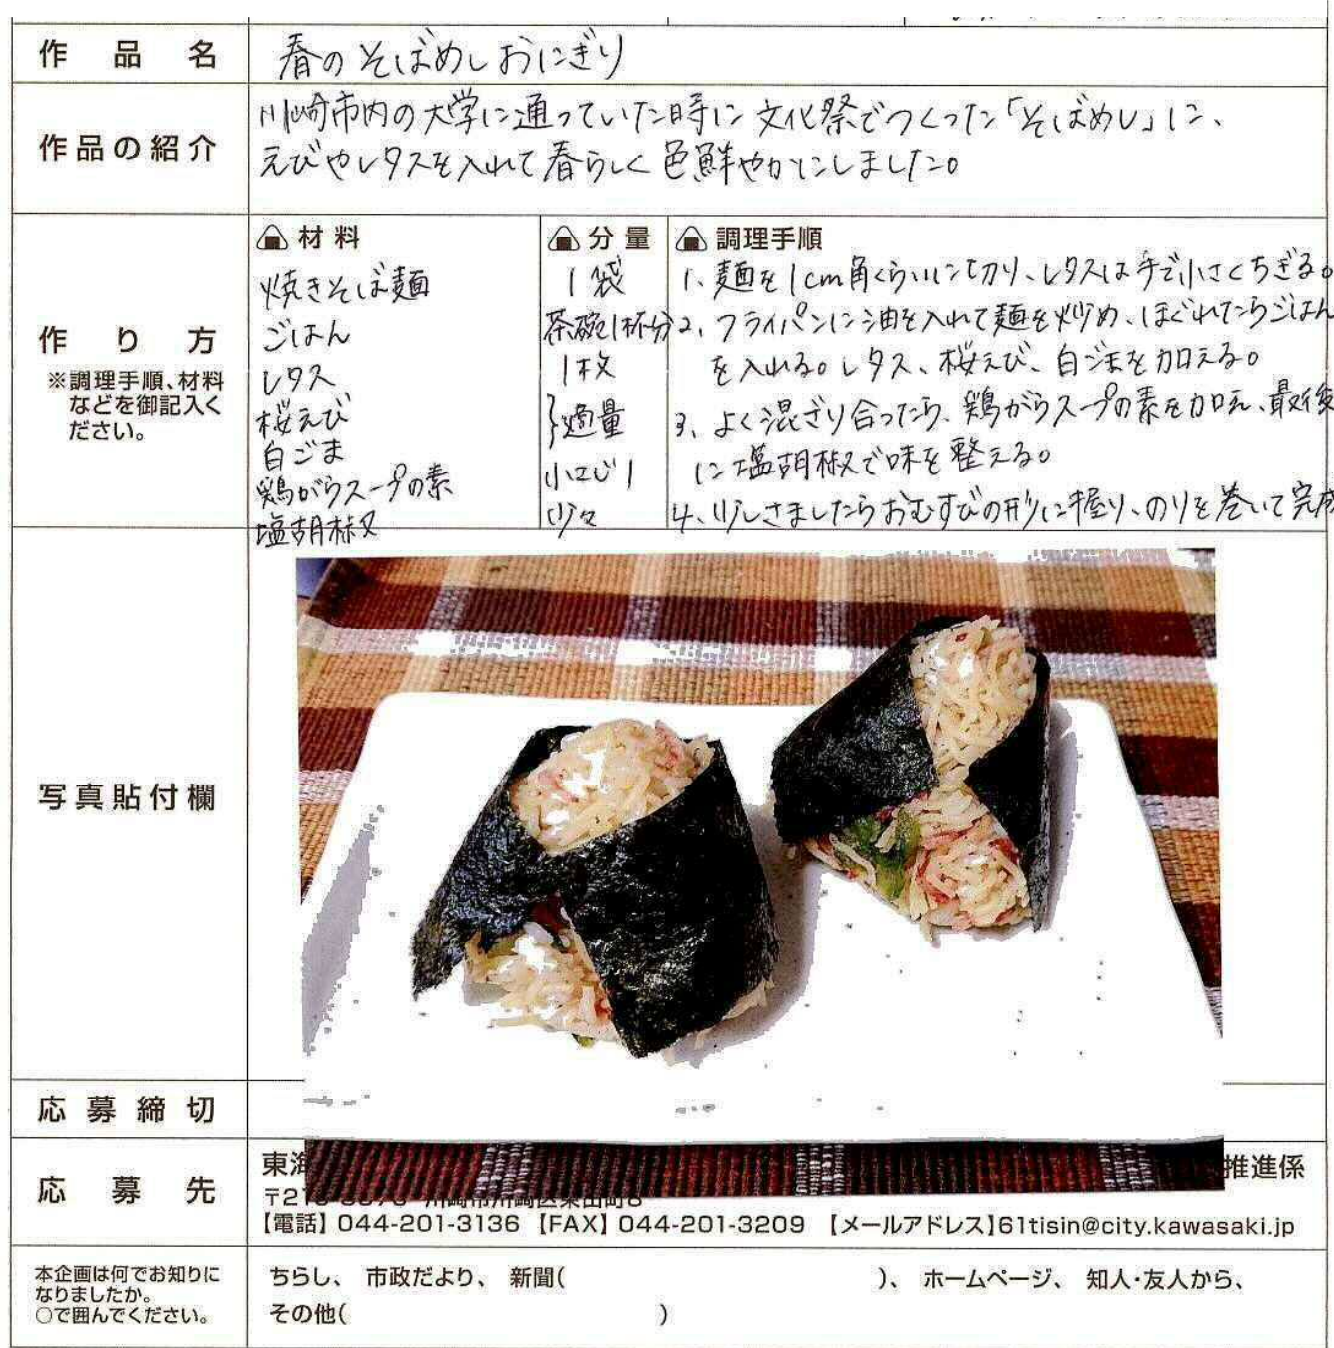 作品名
春のそばめしおにぎり
作品の紹介
川崎市内の大学に通っていた時に文化祭でつくった「そばめし」に、
えびやレタスを入れて春らしく色鮮やかにしました。
作り方
※調理手順、材料
などを御記入く
ださい。
材料
焼きそば麺
ごはん
レタス
桜えび
白ごま
鶏がらスープの素
塩胡椒
分量
1袋
茶碗1杯分
1枚
}適量
小さじ1
少々
調理手順
1、麺を1cm角くらいに切り、レタスは手で小さくちぎる。
2、フライパンに油を入れて麺を炒め、ほぐれたらごはん
を入れる。レタス、桜えび、白ごまを加える。
3、よく混ざり合ったら、鶏がらスープの素を加え、最後
に塩胡椒で味を整える。
4、少しさましたらおむすびの形に握り、のりを巻いて完成
写真貼付欄
応募締切
応募先
東海
推進係
〒21
川崎市川崎区東田町8
【電話】044-201-3136 【FAX】044-201-3209 【メールアドレス】61tisin@city.kawasaki.jp
本企画は何でお知りに
なりましたか。
○で囲んでください。
ちらし、 市政だより、 新聞( )、 ホームページ、 知人・友人から、
その他( )